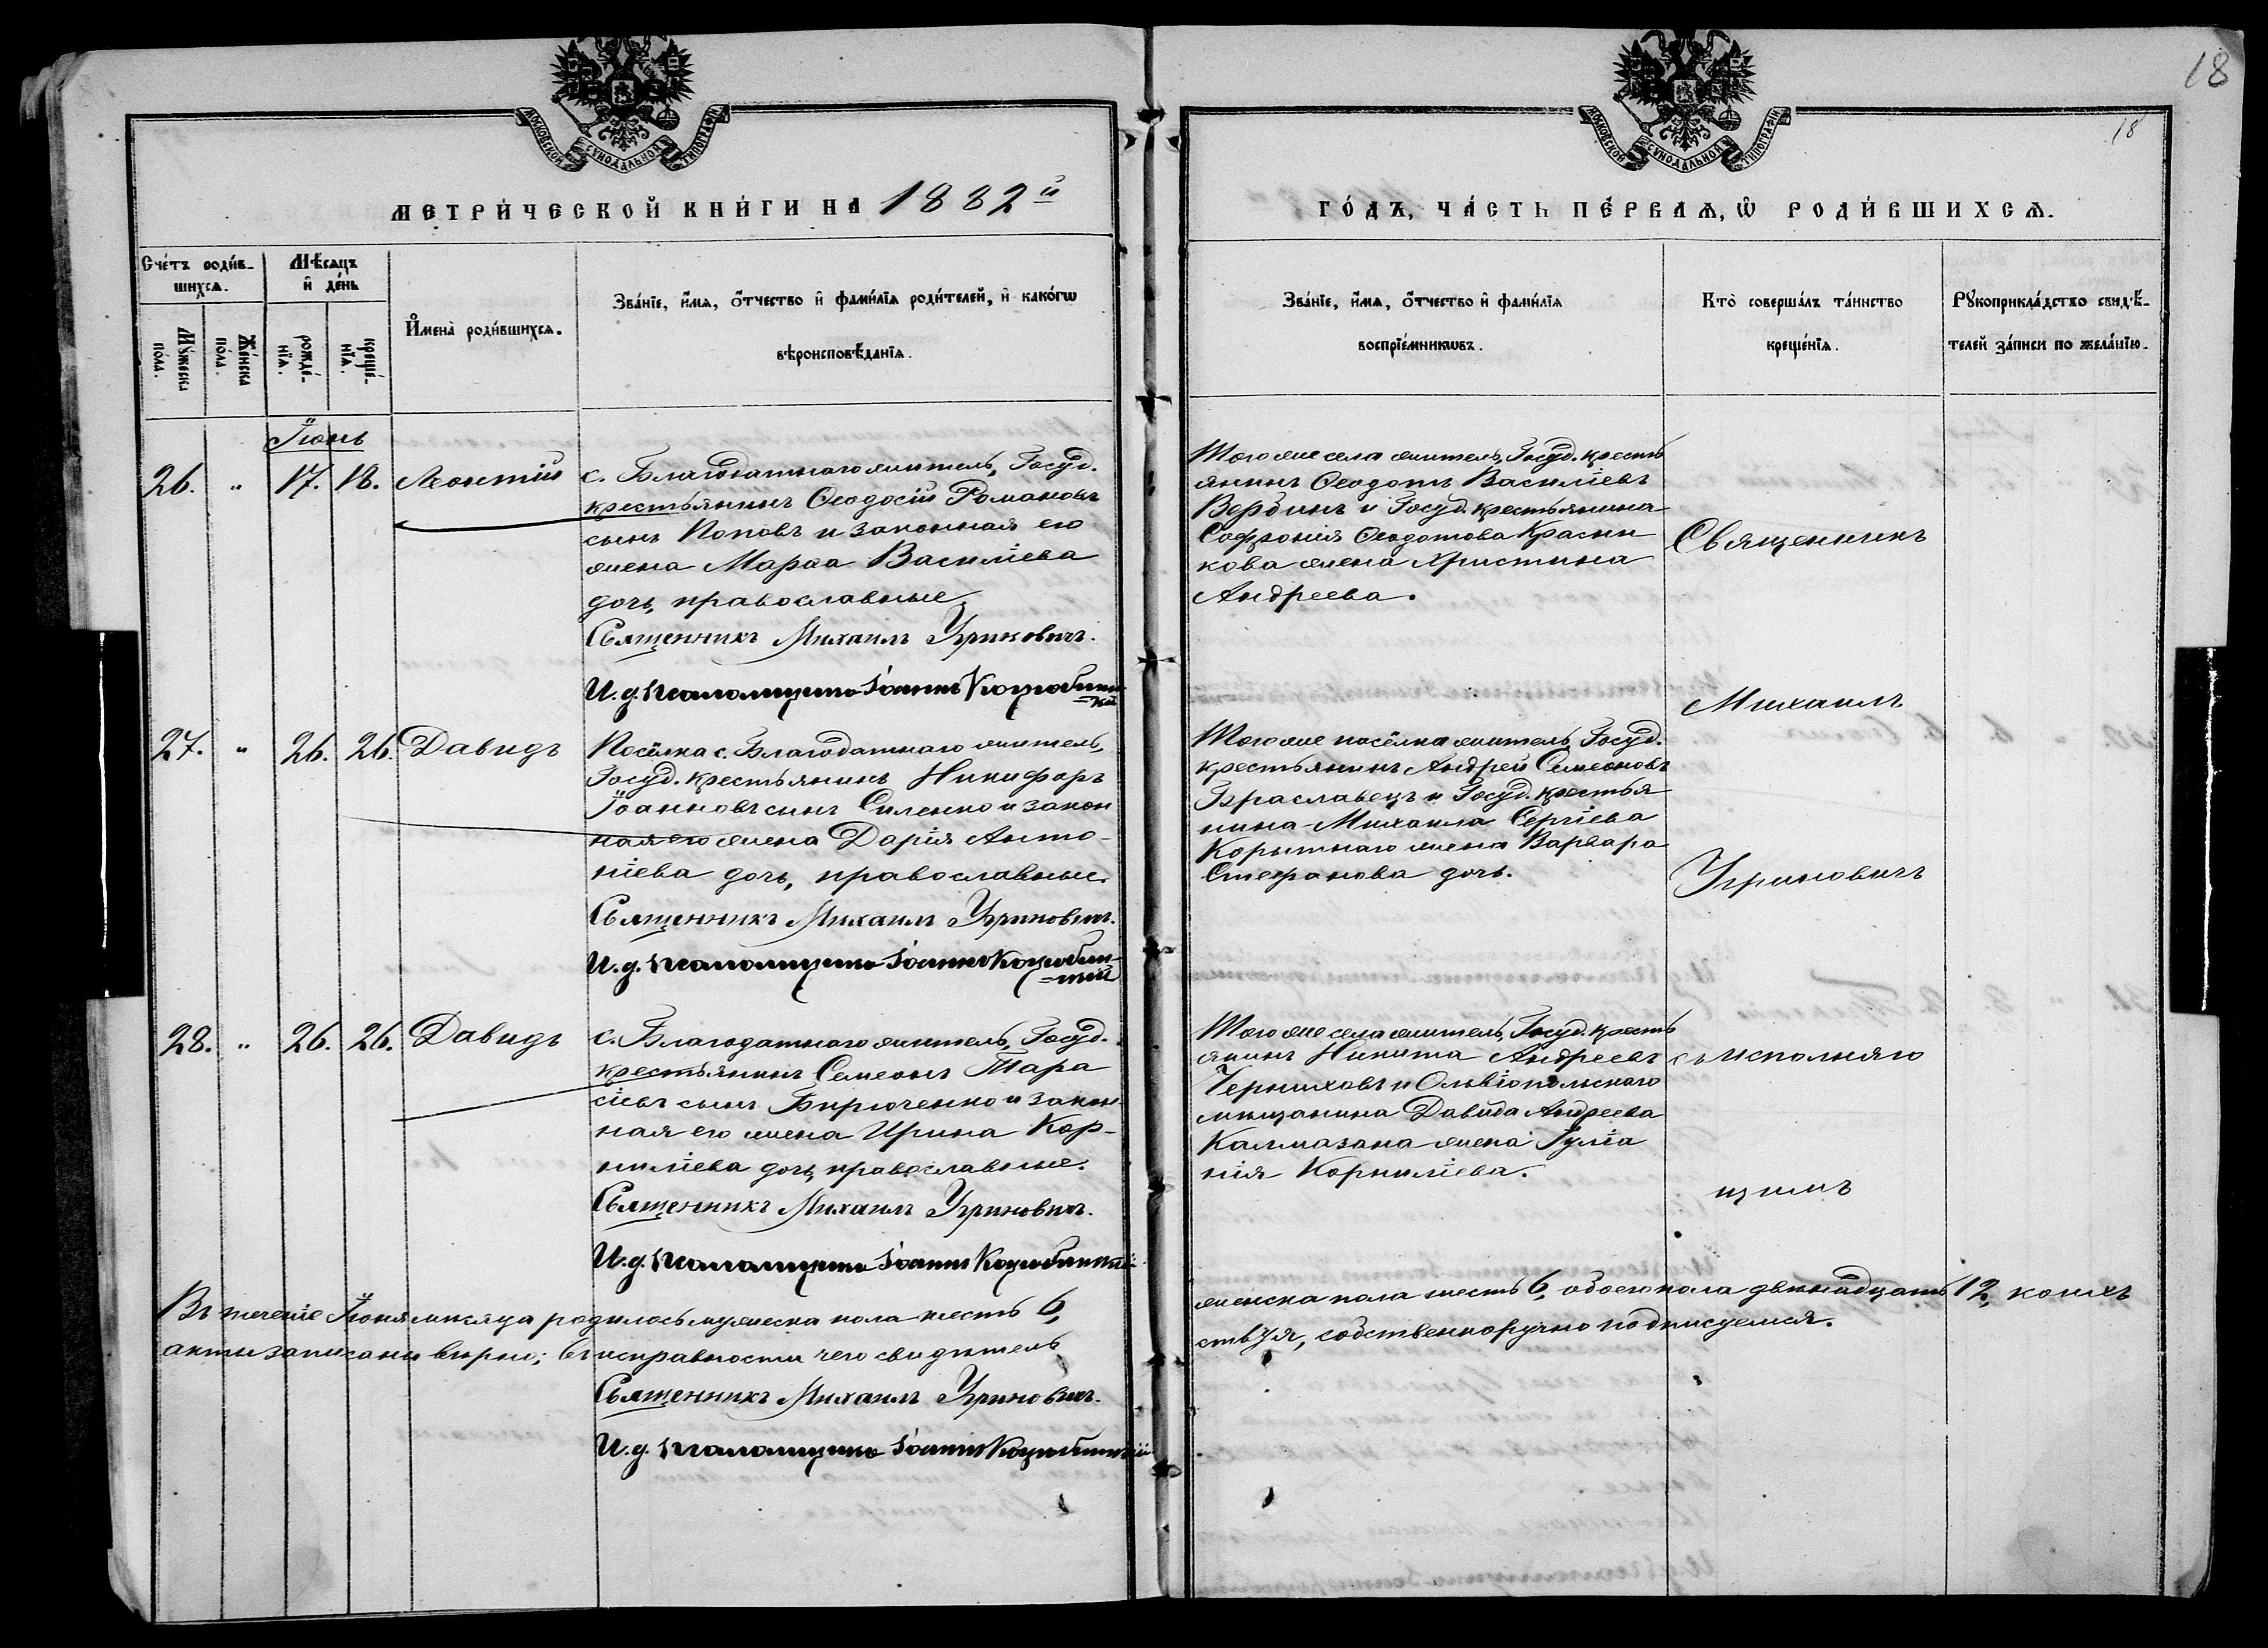 18
18
МОСКОВСКОЙ СѴНОДАЛЬНОЙ ТИПОГРАФІИ
МОСКОВСКОЙ СѴНОДАЛЬНОЙ ТИПОГРАФІИ
МЕТРИ́ЧЕСКОЙ КНИ́ГИ НА 1882й
ГО́ДЪ, ЧА́СТЬ ПЕ́РВАѦ, Ѡ РОДИ́ВШИХСѦ.
Сче́тъ роди́в-
шихсѧ.
Мꙋ́жеска по́ла.
Же́нска по́ла.
Мѣ́сѧцъ
и҆ де́нь
рожде́-
нїѧ.
креще́-
нїѧ.
И҆мена̀ роди́вшихсѧ.
Зва́нїе, и҆́мѧ, ѻ҆́тчество и҆ фами́лїѧ роди́телей, и҆ како́гѡ
вѣроисповѣ́данїѧ.
Зва́нїе, и҆́мѧ, ѻ҆́тчество и҆ фами́лїѧ
воспрїе́мникѡвъ.
Кто̀ соверша́лъ та́инство
креще́нїѧ.
Рꙋкоприкла́дство свидѣ́-
телей за́писи по жела́нїю.
Іюнь
26. " 17. 18. Леонтій
с. Благодатнаго житель, Госуд.
крестьянинъ Ѳеодосій Романовъ
сынъ Поповъ и законная его
жена Марѳа Василіева
дочь, православные.
Священникъ Михаилъ Угриновичъ.
И. д. псаломщика Іоаннъ Коцюбин-
=скій
Тогоже села житель, Госуд. кресть
янинъ Ѳеодотъ Василіевъ
Вербинъ и Госуд. крестьянина
Софронія Ѳеодотова Красни
кова жена Христина
Андреева.
Священникъ
Михаилъ
Угриновичъ
съ исполняю
щимъ
27. " 26. 26. Давидъ
Посёлка с. Благодатнаго житель,
Госуд. крестьянинъ Никифоръ
Іоанновъ сынъ Силенко и закон
ная его жена Дарія Анто-
ніева дочь, православные.
Священникъ Михаилъ Угриновичъ.
И. д. псаломщика Іоаннъ Коцюбин-
=скій
Тогоже посёлка житель Госуд.
крестьянинъ Андрей Семеоновъ
Браславецъ и Госуд. крестья
нина Михаила Сергіева
Корытнаго жена Варвара
Стефанова дочь.
28. " 26. 26. Давидъ
с. Благодатнаго житель, Госуд.
крестьянинъ Семеонъ Тара
сіевъ сынъ Бирюченко и закон
ная его жена Ирина Кор-
ниліева дочь, православные.
Священникъ Михаилъ Угриновичъ.
И. д. псаломщика Іоаннъ Коцюбинскій
Тогоже села житель, Госуд. кресть
янинъ Никита Андреевъ
Черниховъ и Ольвіопольскаго
мѣщанина Давида Андреева
Калмазана жена Іуліа
нія Корниліева.
Въ теченіе Іюня мѣсяца родилось мужеска пола шесть 6, женска пола шесть 6, обоего пола двѣнадцать 12, коихъ
акты записаны вѣрно; въ исправности чего свидѣтель ствуя, собственноручно подписуемся.
Священникъ Михаилъ Угриновичъ.
И. д. псаломщика Іоаннъ Коцюбинскій